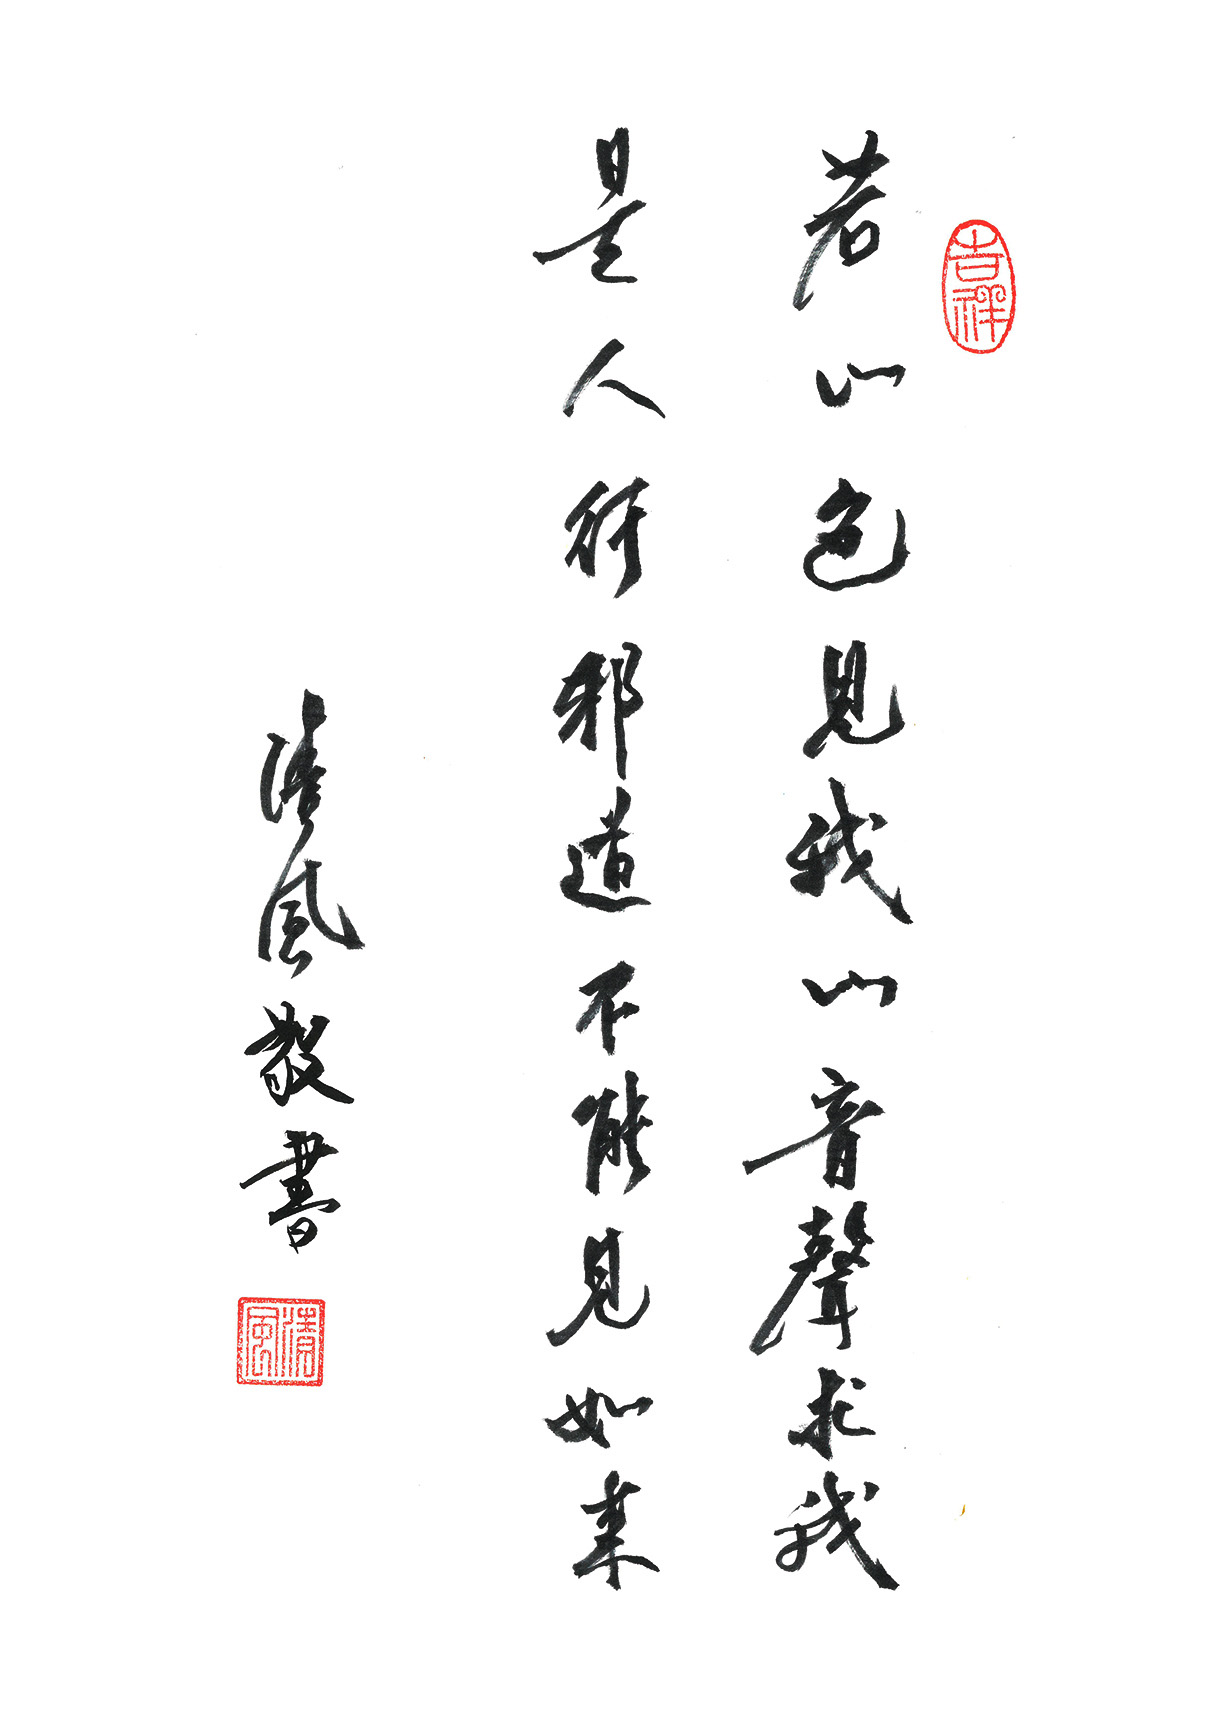 吉祥
若以色見我以音聲求我
是人行邪道不能見如來
清風敬書
清風